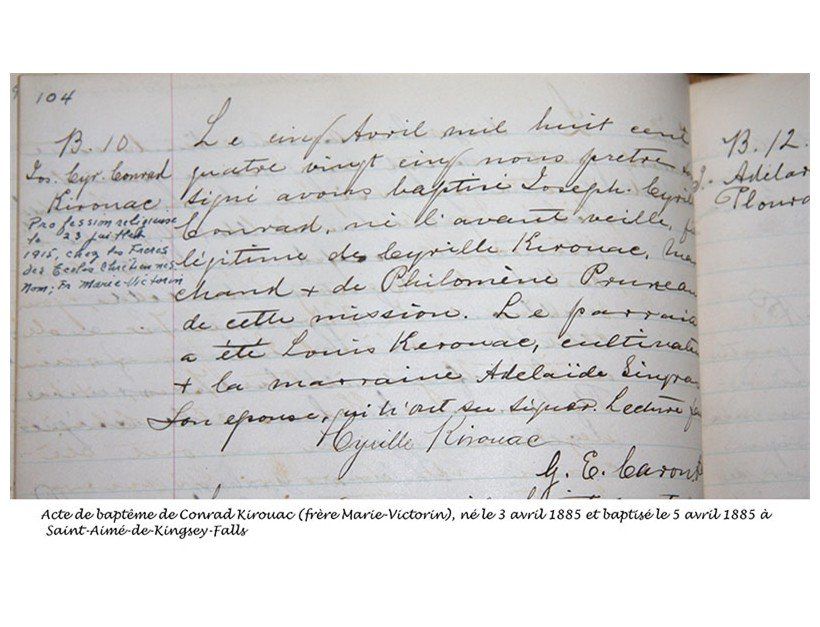 104
B. 10
Jos. Cyr. Conrad
Kirouac
Profession religieuse
le 23 juillet
1915, chez les Frères
des Ecoles Chrétiennes
Nom; Fr Marie-Victorin
Le cinq Avril mil huit cent
quatre vingt cinq nous pretre
signé avons baptisé Joseph. Cyril
Conrad, né l'avant veille, fi
légitime de Cyrille Kirouac, Mar
chand + de Philomène Pruneau
de cette mission. Le parrain
a été Louis Kerouac, cultivate
+ la marraine Adelaïde Singra
Son epouse, qui n'ont su signer. Lecture fai
Cyrille Kirouac
G. E. Caron
B. 12.
J. Adélar
Plourd
Acte de baptême de Conrad Kirouac (frère Marie-Victorin), né le 3 avril 1885 et baptisé le 5 avril 1885 à
Saint-Aimé-de-Kingsey-Falls